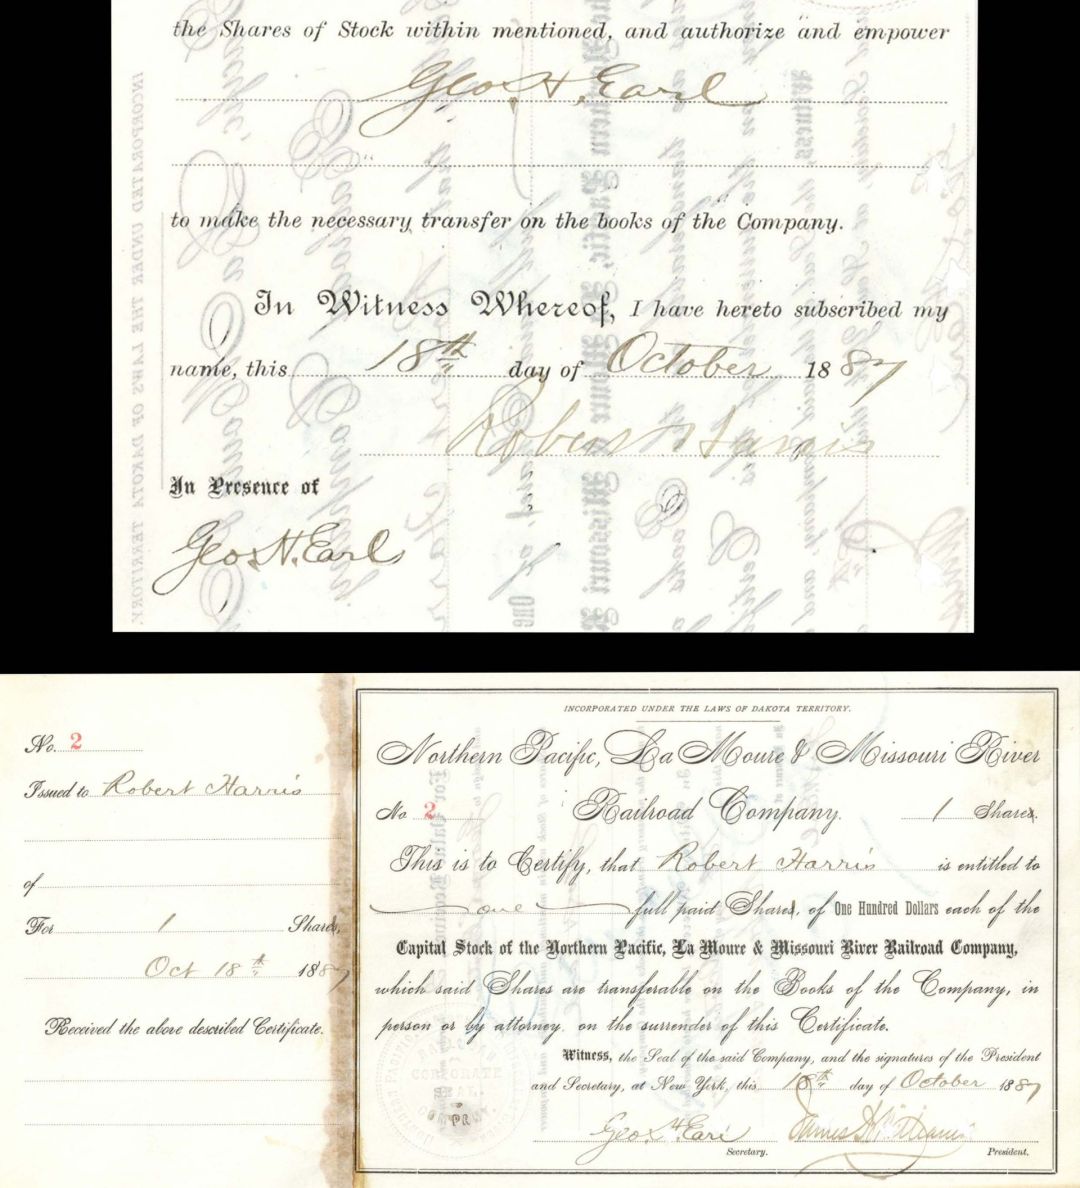 the Shares of Stock within mentioned, and authorize and empower
Geo. H. Earl
to make the necessary transfer on the books of the Company.
In Witness Whereof, I have hereto subscribed my
name, this 18th day of October 1887
Robert Harris
In Presence of
Geo. H. Earl
INCORPORATED UNDER THE LAWS OF DAKOTA TERRITORY.
No. 2
Issued to Robert Harris
of
For 1 Shares,
Oct 18th 1887
Received the above described Certificate.
INCORPORATED UNDER THE LAWS OF DAKOTA TERRITORY.
Northern Pacific, La Moure & Missouri River
No 2 Railroad Company. 1 Shares.
This is to Certify, that Robert Harris is entitled to
one full paid Shares, of One Hundred Dollars each of the
Capital Stock of the Northern Pacific, La Moure & Missouri River Railroad Company,
which said Shares are transferable on the Books of the Company, in
person or by attorney on the surrender of this Certificate.
Witness, the Seal of the said Company, and the signatures of the President
and Secretary, at New York, this 18th day of October 1887
Geo. H. Earl James B. Williams
Secretary. President.